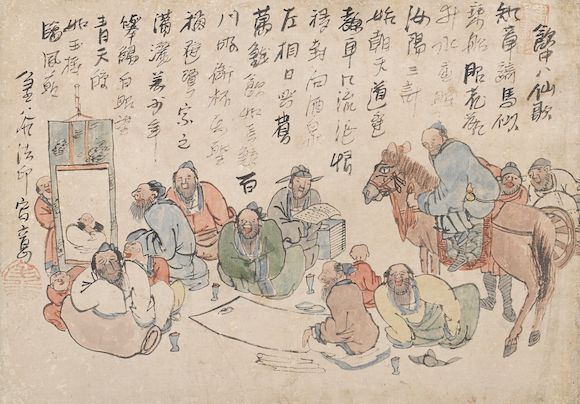 飮中八仙歌
知章騎馬似
乘船眼花落
井水底眠
汝陽三斗
始朝天道逢
麴車口流涎恨
移封向酒泉
左相日興費
萬錢飮如長鯨百
川銜杯樂聖
稱避賢宗之
瀟灑美少年
擧觴白眼望
靑天皎
如玉樹
臨風前
法印